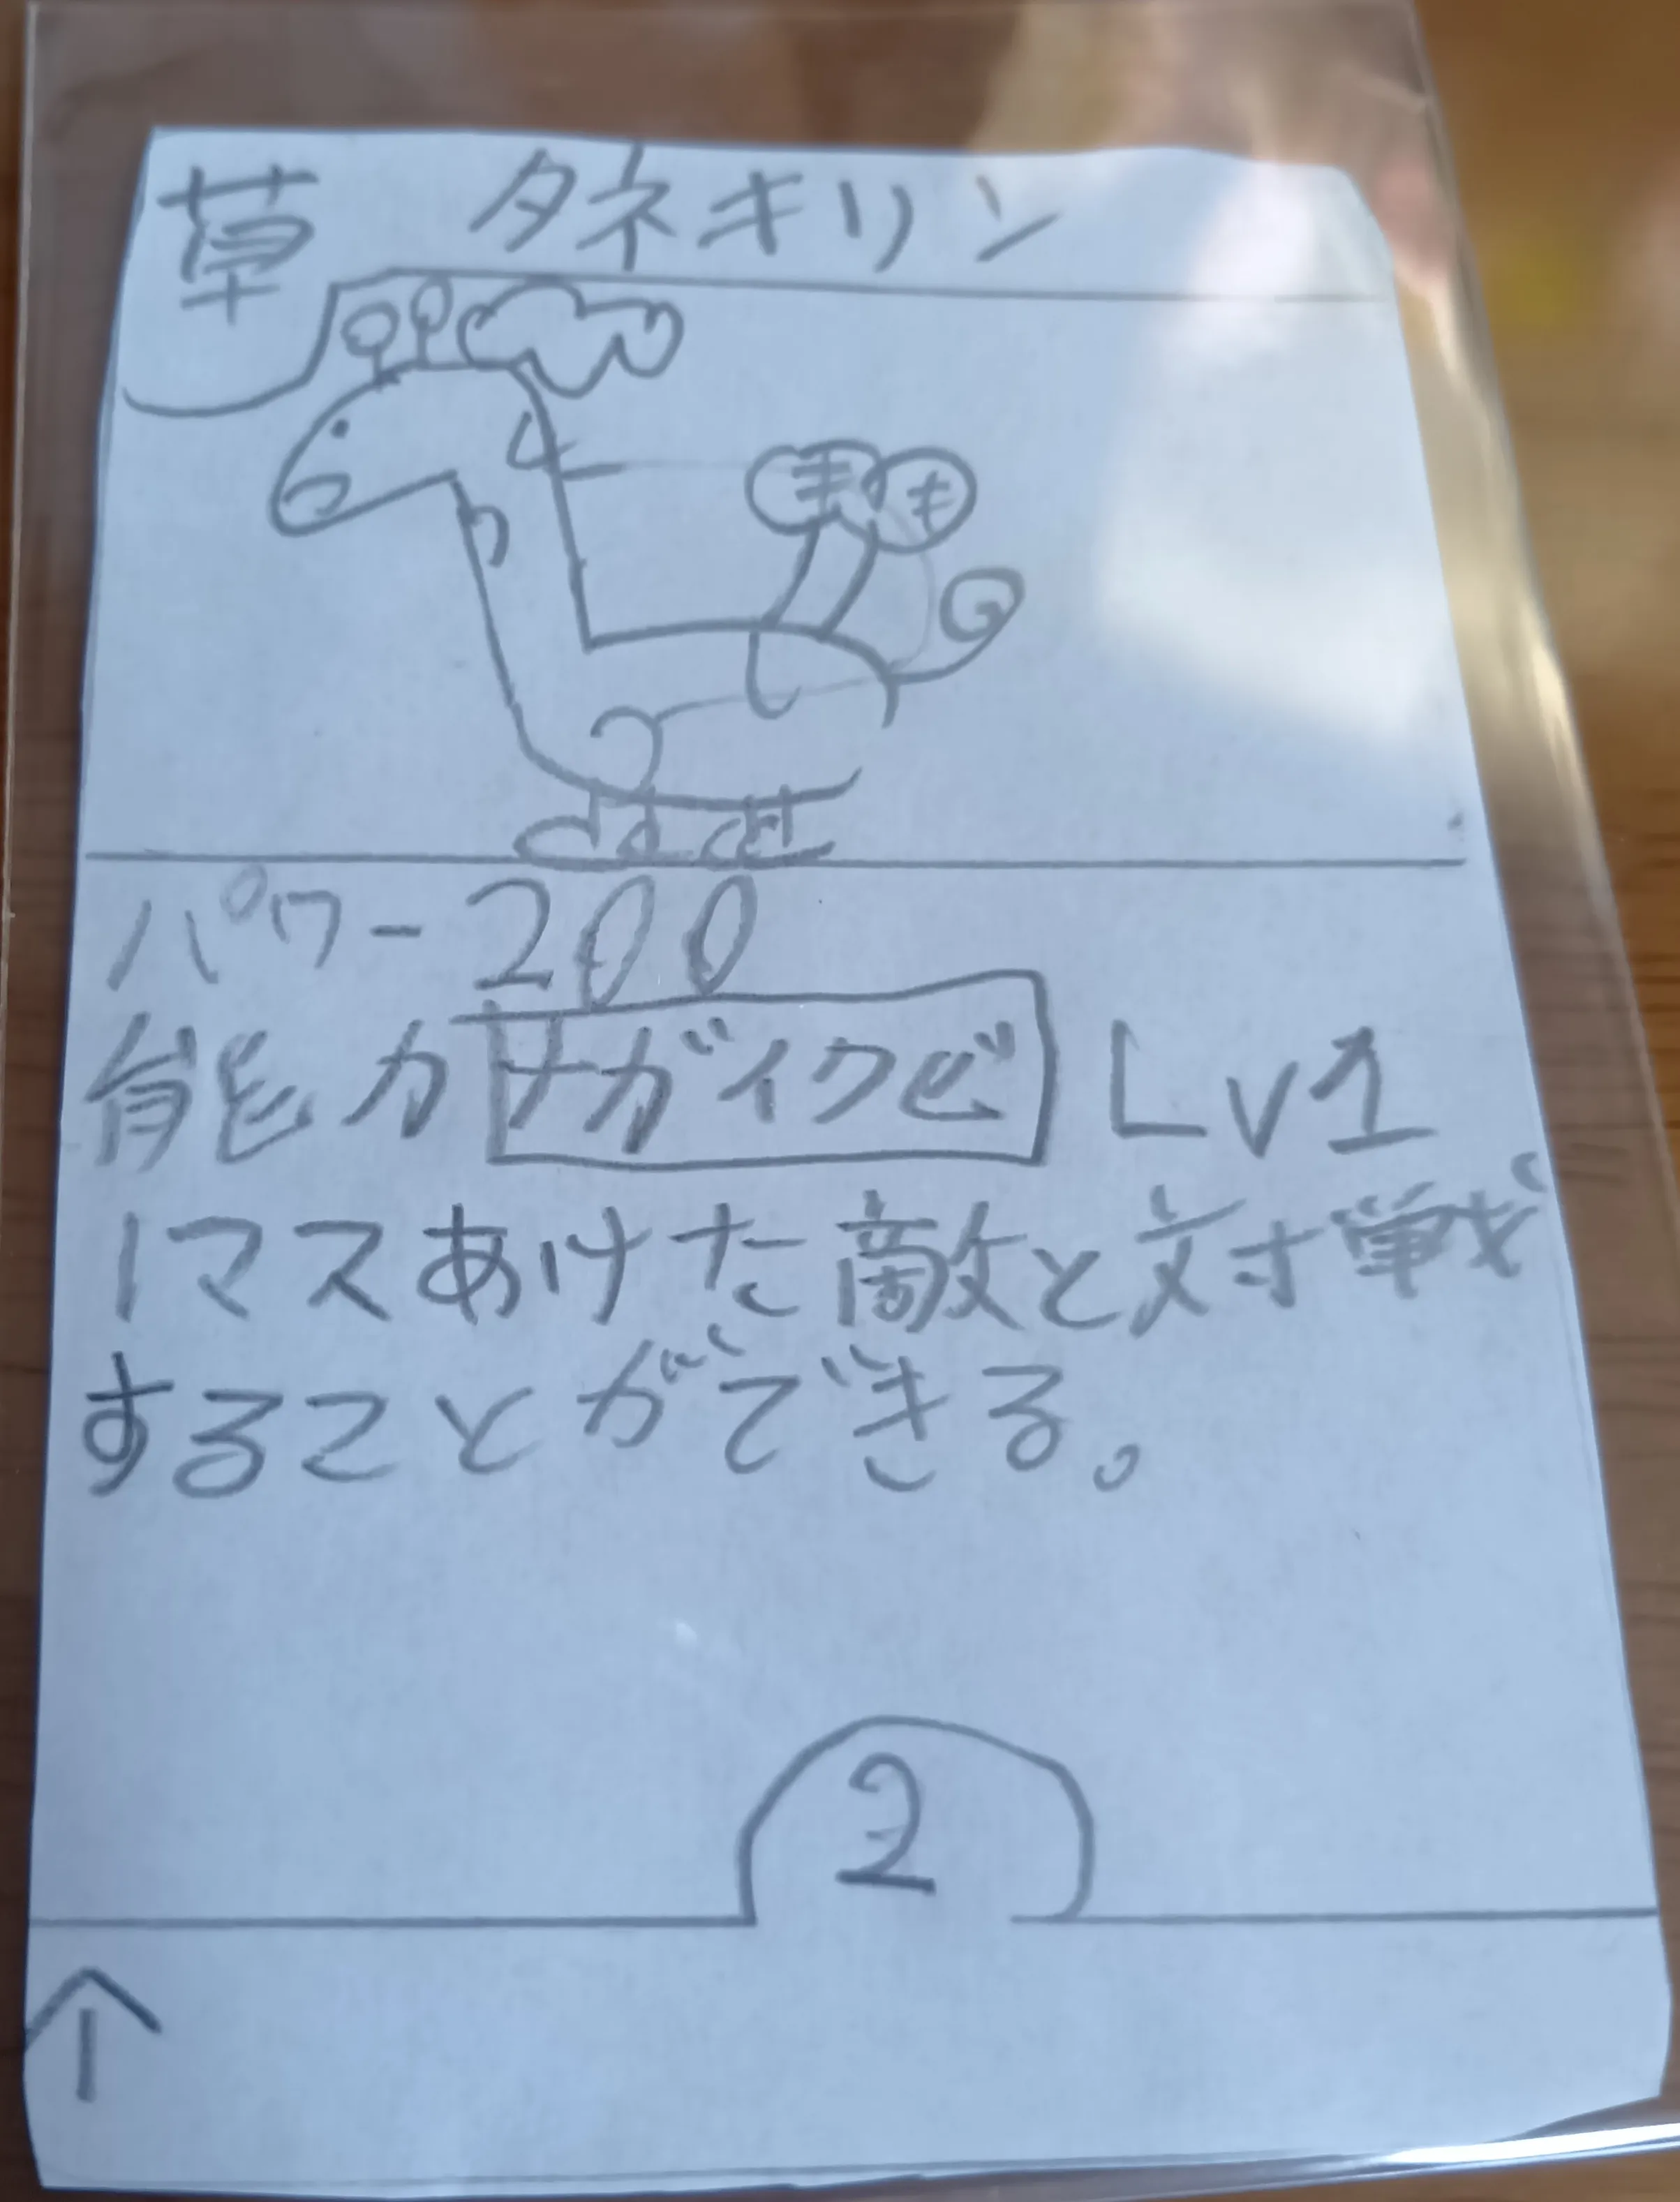 草 タネキリン
キ キ
パワー200
能力 ナガイクビ Lv1
1マスあけた敵と対戦
することができる。
2
↑